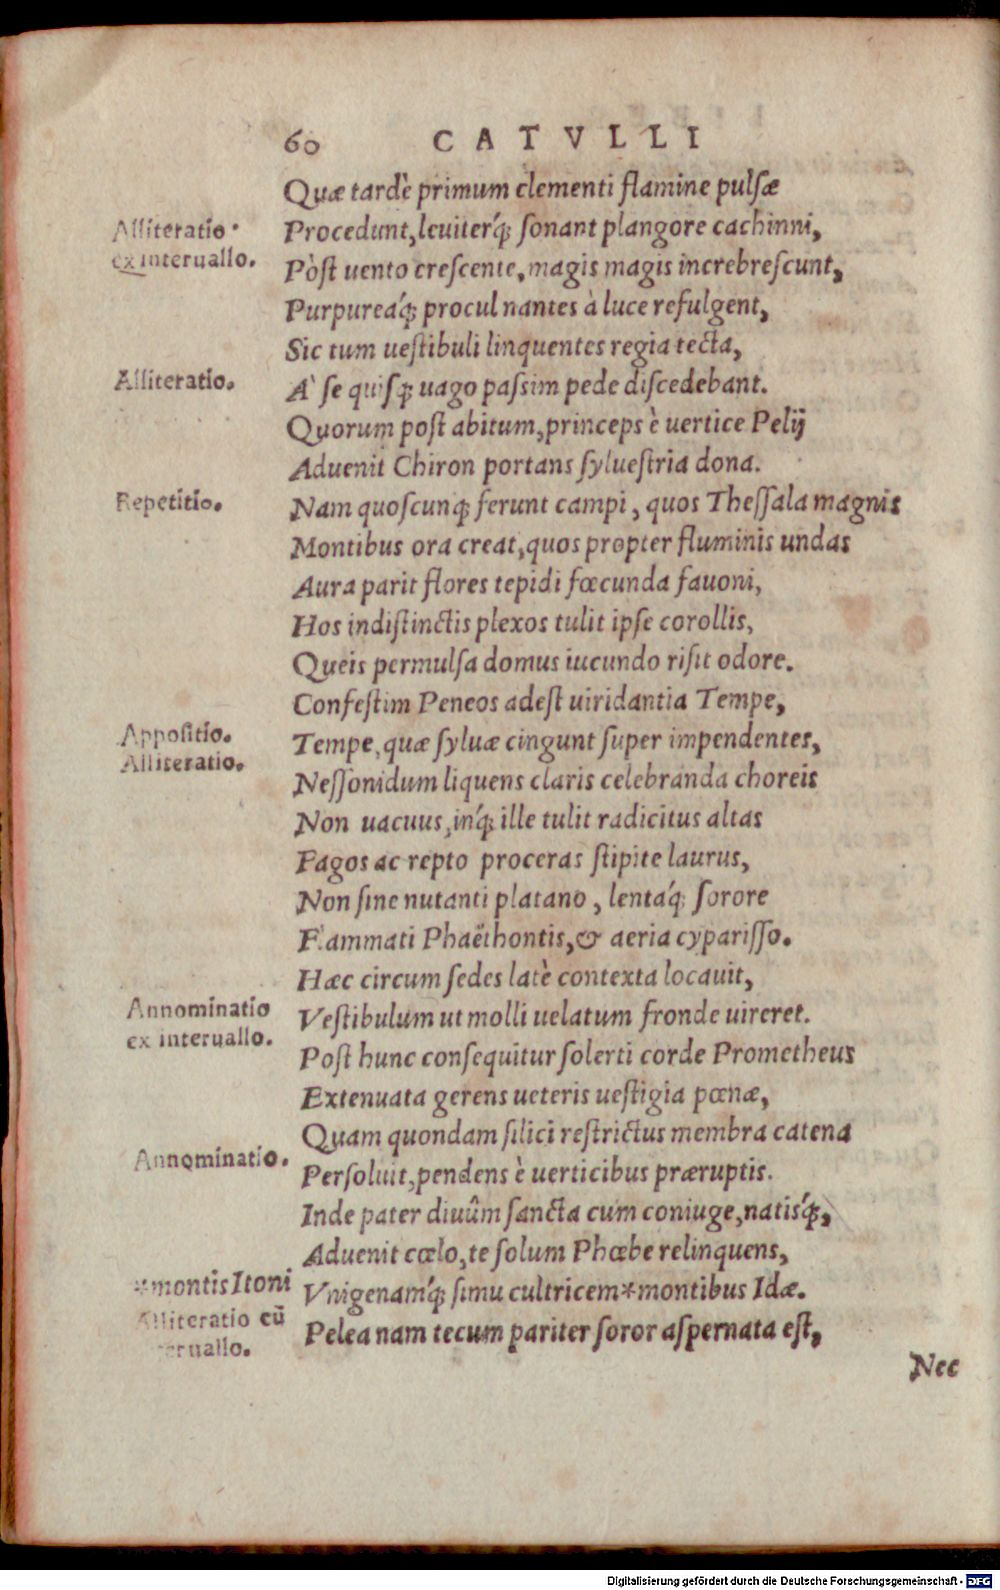 60 CATVLLI
Quæ tardè primum clementi flamine pulsæ
Alliteratio
ex interuallo.
Procedunt, leuiterq́; sonant plangore cachinni,
Pòst uento crescente, magis magis increbrescunt,
Purpureáq́; procul nantes à luce refulgent,
Sic tum uestibuli linquentes regia tecta,
Alliteratio.
A' se quisq; uago passim pede discedebant.
Quorum post abitum, princeps è uertice Pelij
Aduenit Chiron portans syluestria dona.
Repetitio.
Nam quoscunq; ferunt campi, quos Thessala magnis
Montibus ora creat, quos propter fluminis undas
Aura parit flores tepidi fœcunda fauoni,
Hos indistinctis plexos tulit ipse corollis,
Queis permulsa domus iucundo risit odore.
Confestim Peneos adest uiridantia Tempe,
Appositio.
Alliteratio.
Tempe, quæ syluæ cingunt super impendentes,
Nessonidum liquens claris celebranda choreis
Non uacuus, inq́; ille tulit radicitus altas
Fagos ac repto proceras stipite laurus,
Non sine nutanti platano, lentáq́; sorore
Flammati Phaëthontis, & aeria cyparisso.
Hæc circum sedes latè contexta locauit,
Annominatio
ex interuallo.
Vestibulum ut molli uelatum fronde uireret.
Post hunc consequitur solerti corde Prometheus
Extenuata gerens ueteris uestigia pœnæ,
Quam quondam silici restrictus membra catena
Annominatio.
Persoluit, pendens è uerticibus præruptis.
Inde pater diuûm sancta cum coniuge, natisq́;,
Aduenit cœlo, te solum Phœbe relinquens,
*montis Itoni
Vnigenamq́; simu cultricem*montibus Idæ.
Alliteratio cū
eruallo.
Pelea nam tecum pariter soror aspernata est,
Nec
Digitalisierung gefördert durch die Deutsche Forschungsgemeinschaft - DFG